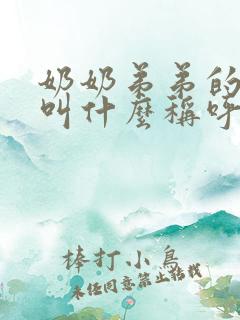 奶奶弟弟的
叫什麼稱呼
棒打小鳥
未經同意禁止轉載